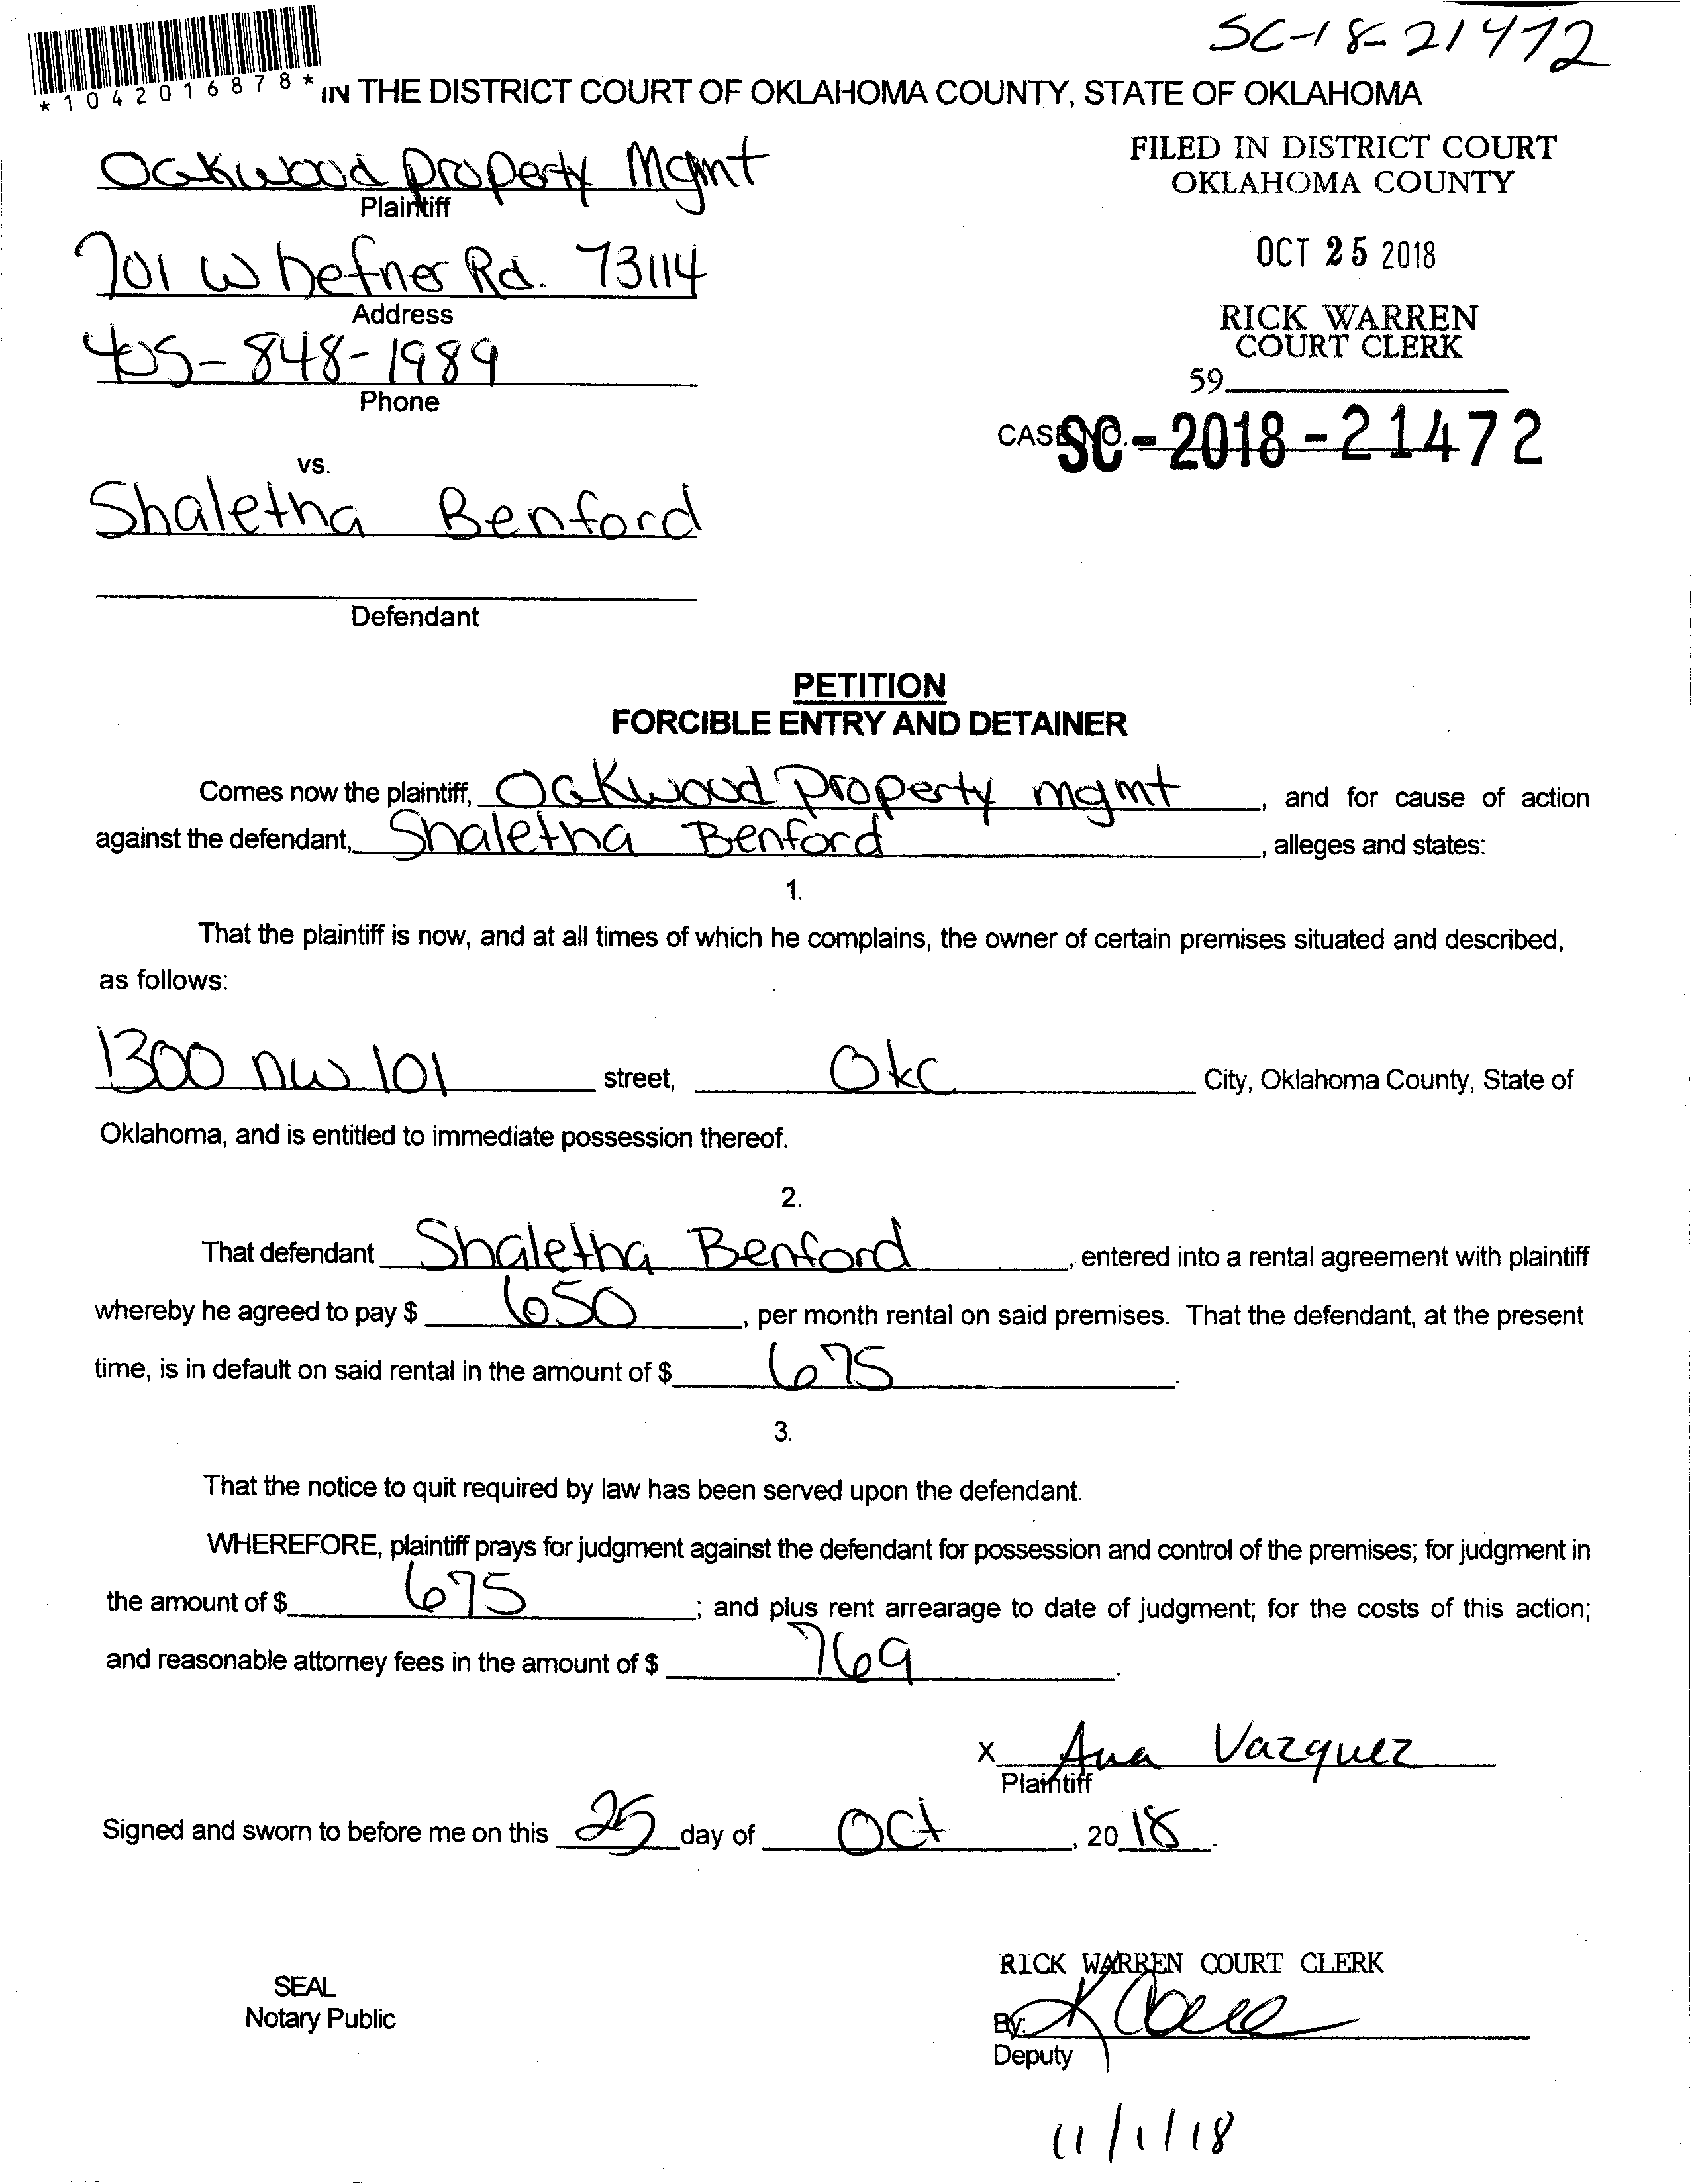 SC-18-21472
*1042016878*
IN THE DISTRICT COURT OF OKLAHOMA COUNTY, STATE OF OKLAHOMA
Oakwood Property Mgmt
Plaintiff
FILED IN DISTRICT COURT
OKLAHOMA COUNTY
701 W hefner Rd. 73114
Address
OCT 25 2018
405-848-1989
Phone
RICK WARREN
COURT CLERK
59
CASE NO. SC-2018-21472
vs.
Shaletha Benford
Defendant
PETITION
FORCIBLE ENTRY AND DETAINER
Comes now the plaintiff, Oakwood Property mgmt, and for cause of action
against the defendant, Shaletha Benford, alleges and states:
1.
That the plaintiff is now, and at all times of which he complains, the owner of certain premises situated and described,
as follows:
1300 nw 101 street, Okc City, Oklahoma County, State of
Oklahoma, and is entitled to immediate possession thereof.
2.
That defendant Shaletha Benford, entered into a rental agreement with plaintiff
whereby he agreed to pay $ 650, per month rental on said premises. That the defendant, at the present
time, is in default on said rental in the amount of $ 675.
3.
That the notice to quit required by law has been served upon the defendant.
WHEREFORE, plaintiff prays for judgment against the defendant for possession and control of the premises; for judgment in
the amount of $ 675; and plus rent arrearage to date of judgment; for the costs of this action;
and reasonable attorney fees in the amount of $ 769.
x Ana Vazquez
Plaintiff
Signed and sworn to before me on this 25 day of Oct, 20 18.
SEAL
Notary Public
RICK WARREN COURT CLERK
By:
Deputy
11/1/18